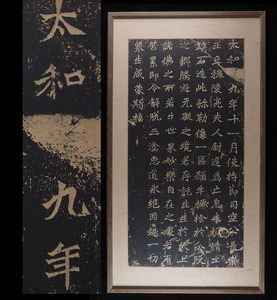 太和九年十一月使持節司空公長樂
王丘穆陵亮夫人尉遲為亡息牛橛請工
鏤石造此彌勒像一區願牛橛捨於分段
之鄉騰遊无礙之境若存託生生於天上
諸佛之所若生世界妙樂自在之處若有
苦累即令解脫三塗惡道永絕因趣一切
眾生咸蒙斯福
太和九年